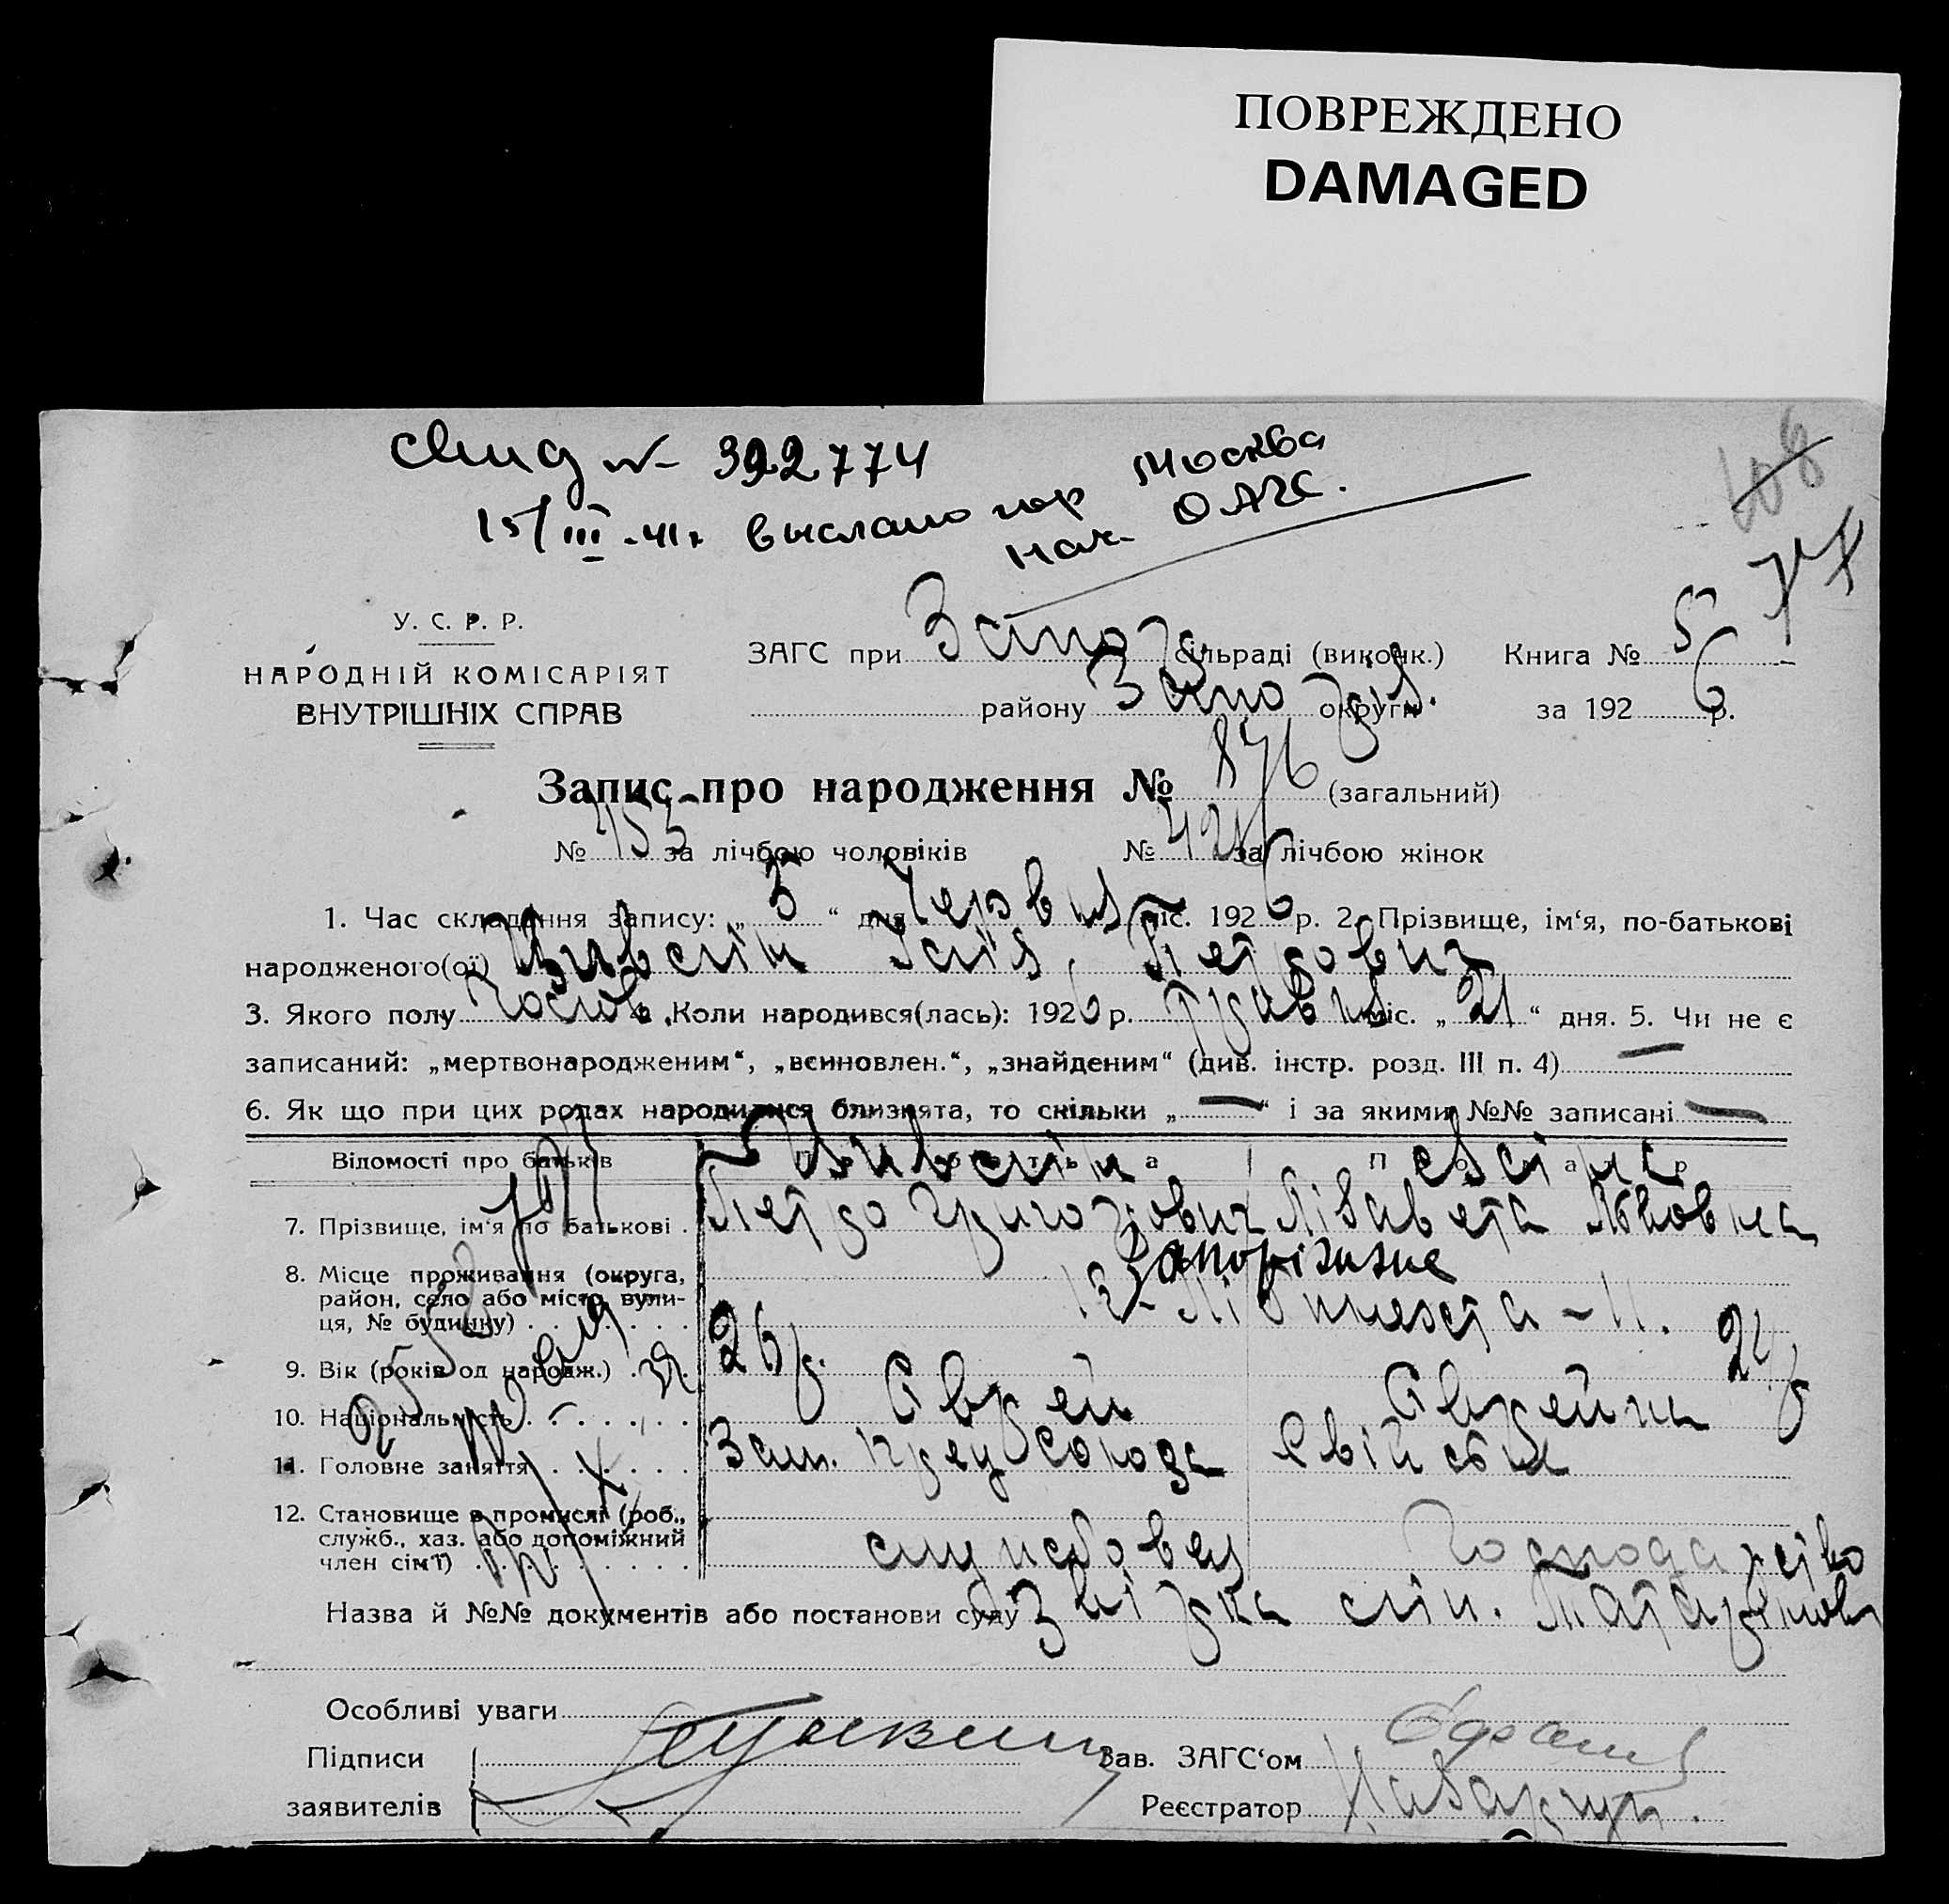 ПОВРЕЖДЕНО
DAMAGED
свид № 392774
15/III-41г. выслано гор Москва
нач. ОАГС.
108
77
У. С. Р. Р.
НАРОДНІЙ КОМІСАРІЯТ
ВНУТРІШНІХ СПРАВ
ЗАГС при Запоз сільраді (виконк.) Книга № 5
району Запо округи за 1926 р.
Запис про народження № 876 (загальний)
№ 453 за лічбою чоловіків № 424 за лічбою жінок
1. Час складання запису: „3“ дня Червня міс. 1926 р. 2. Прізвище, ім‘я, по-батькові
народженого(ої) Цивслін Ілія Петрович
3. Якого полу Чолов 4. Коли народився(лась): 1926 р. Травня міс. „21“ дня. 5. Чи не є
записаний: „мертвонародженим“, „всиновлен.“, „знайденим“ (див. інстр. розд. III п. 4) —
6. Як що при цих родах народилися близнята, то скільки „—“ і за якими №№ записані —
Відомості про батьків Про батька Про матір
7. Прізвище, ім‘я по батькові . Петро Григорович Лізавета Львовна
8. Місце проживання (округа,
район, село або місто, вули-
ця, № будинку) . . . . . . . . Запоріжжє
Лібкнехта - 11.
9. Вік (років од народж.) . . . 26 р. 24 р
10. Національність . . . . . . . Єврей Єврейка
11. Головне заняття . . . . . . Зам. пред союза
12. Становище в промислі (роб.,
служб., хаз. або допоміжний
член сім‘ї) . . . . . . . . службовец Господарство
Назва й №№ документів або постанови суду
Особливі уваги
Підписи Зав. ЗАГС‘ом
заявителів Реєстратор